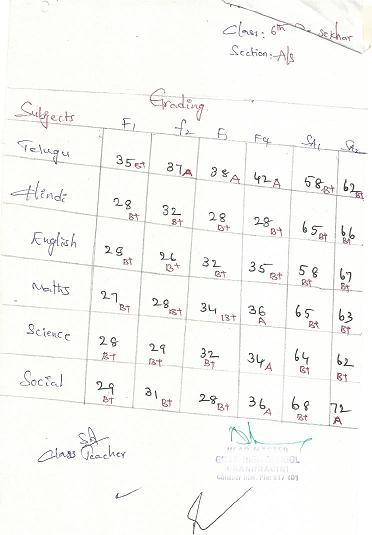 Class: 6th
Section: A/s
Grading
Subjects F1 F2 F3 F4 SA1 SA2
Telugu 35 B+ 37 A 38 A 42 A 58 B+ 62 B+
Hindi 28 B+ 32 B+ 28 B+ 28 B+ 65 B+ 66 B+
English 28 B+ 26 B+ 32 B+ 35 B+ 58 B+ 67 B+
Maths 27 B+ 28 B+ 34 B+ 36 A 65 B+ 63 B+
Science 28 B+ 29 B+ 32 B+ 34 A 64 B+ 62 B+
Social 29 B+ 31 B+ 28 B+ 36 A 68 B+ 72 A
Class Teacher
HEAD MASTER
HIGH SCHOOL